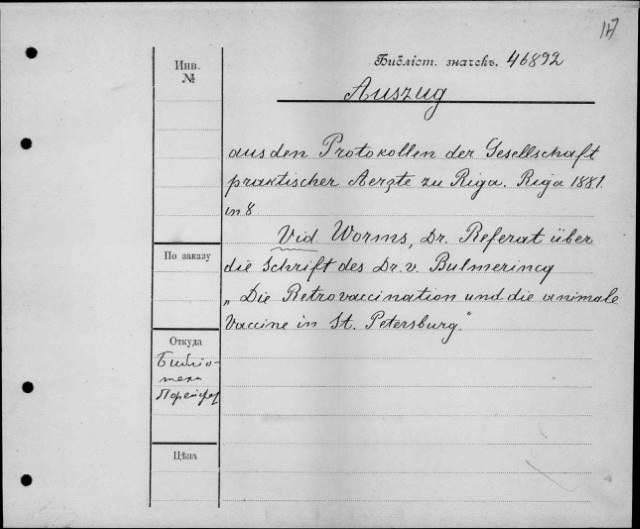 117
Библіот. значекъ. 46892
Auszug
aus den Protokollen der Gesellschaft
praktischer Aerzte zu Riga. Riga 1881.
in 8
Vid Worms, Dr. Referat über
die Schrift des Dr. v. Bulmerincq
„Die Retrovaccination und die animale
Vaccine in St. Petersburg."
Инв.
№
По заказу
Откуда
Библіо-
тека
Цѣна